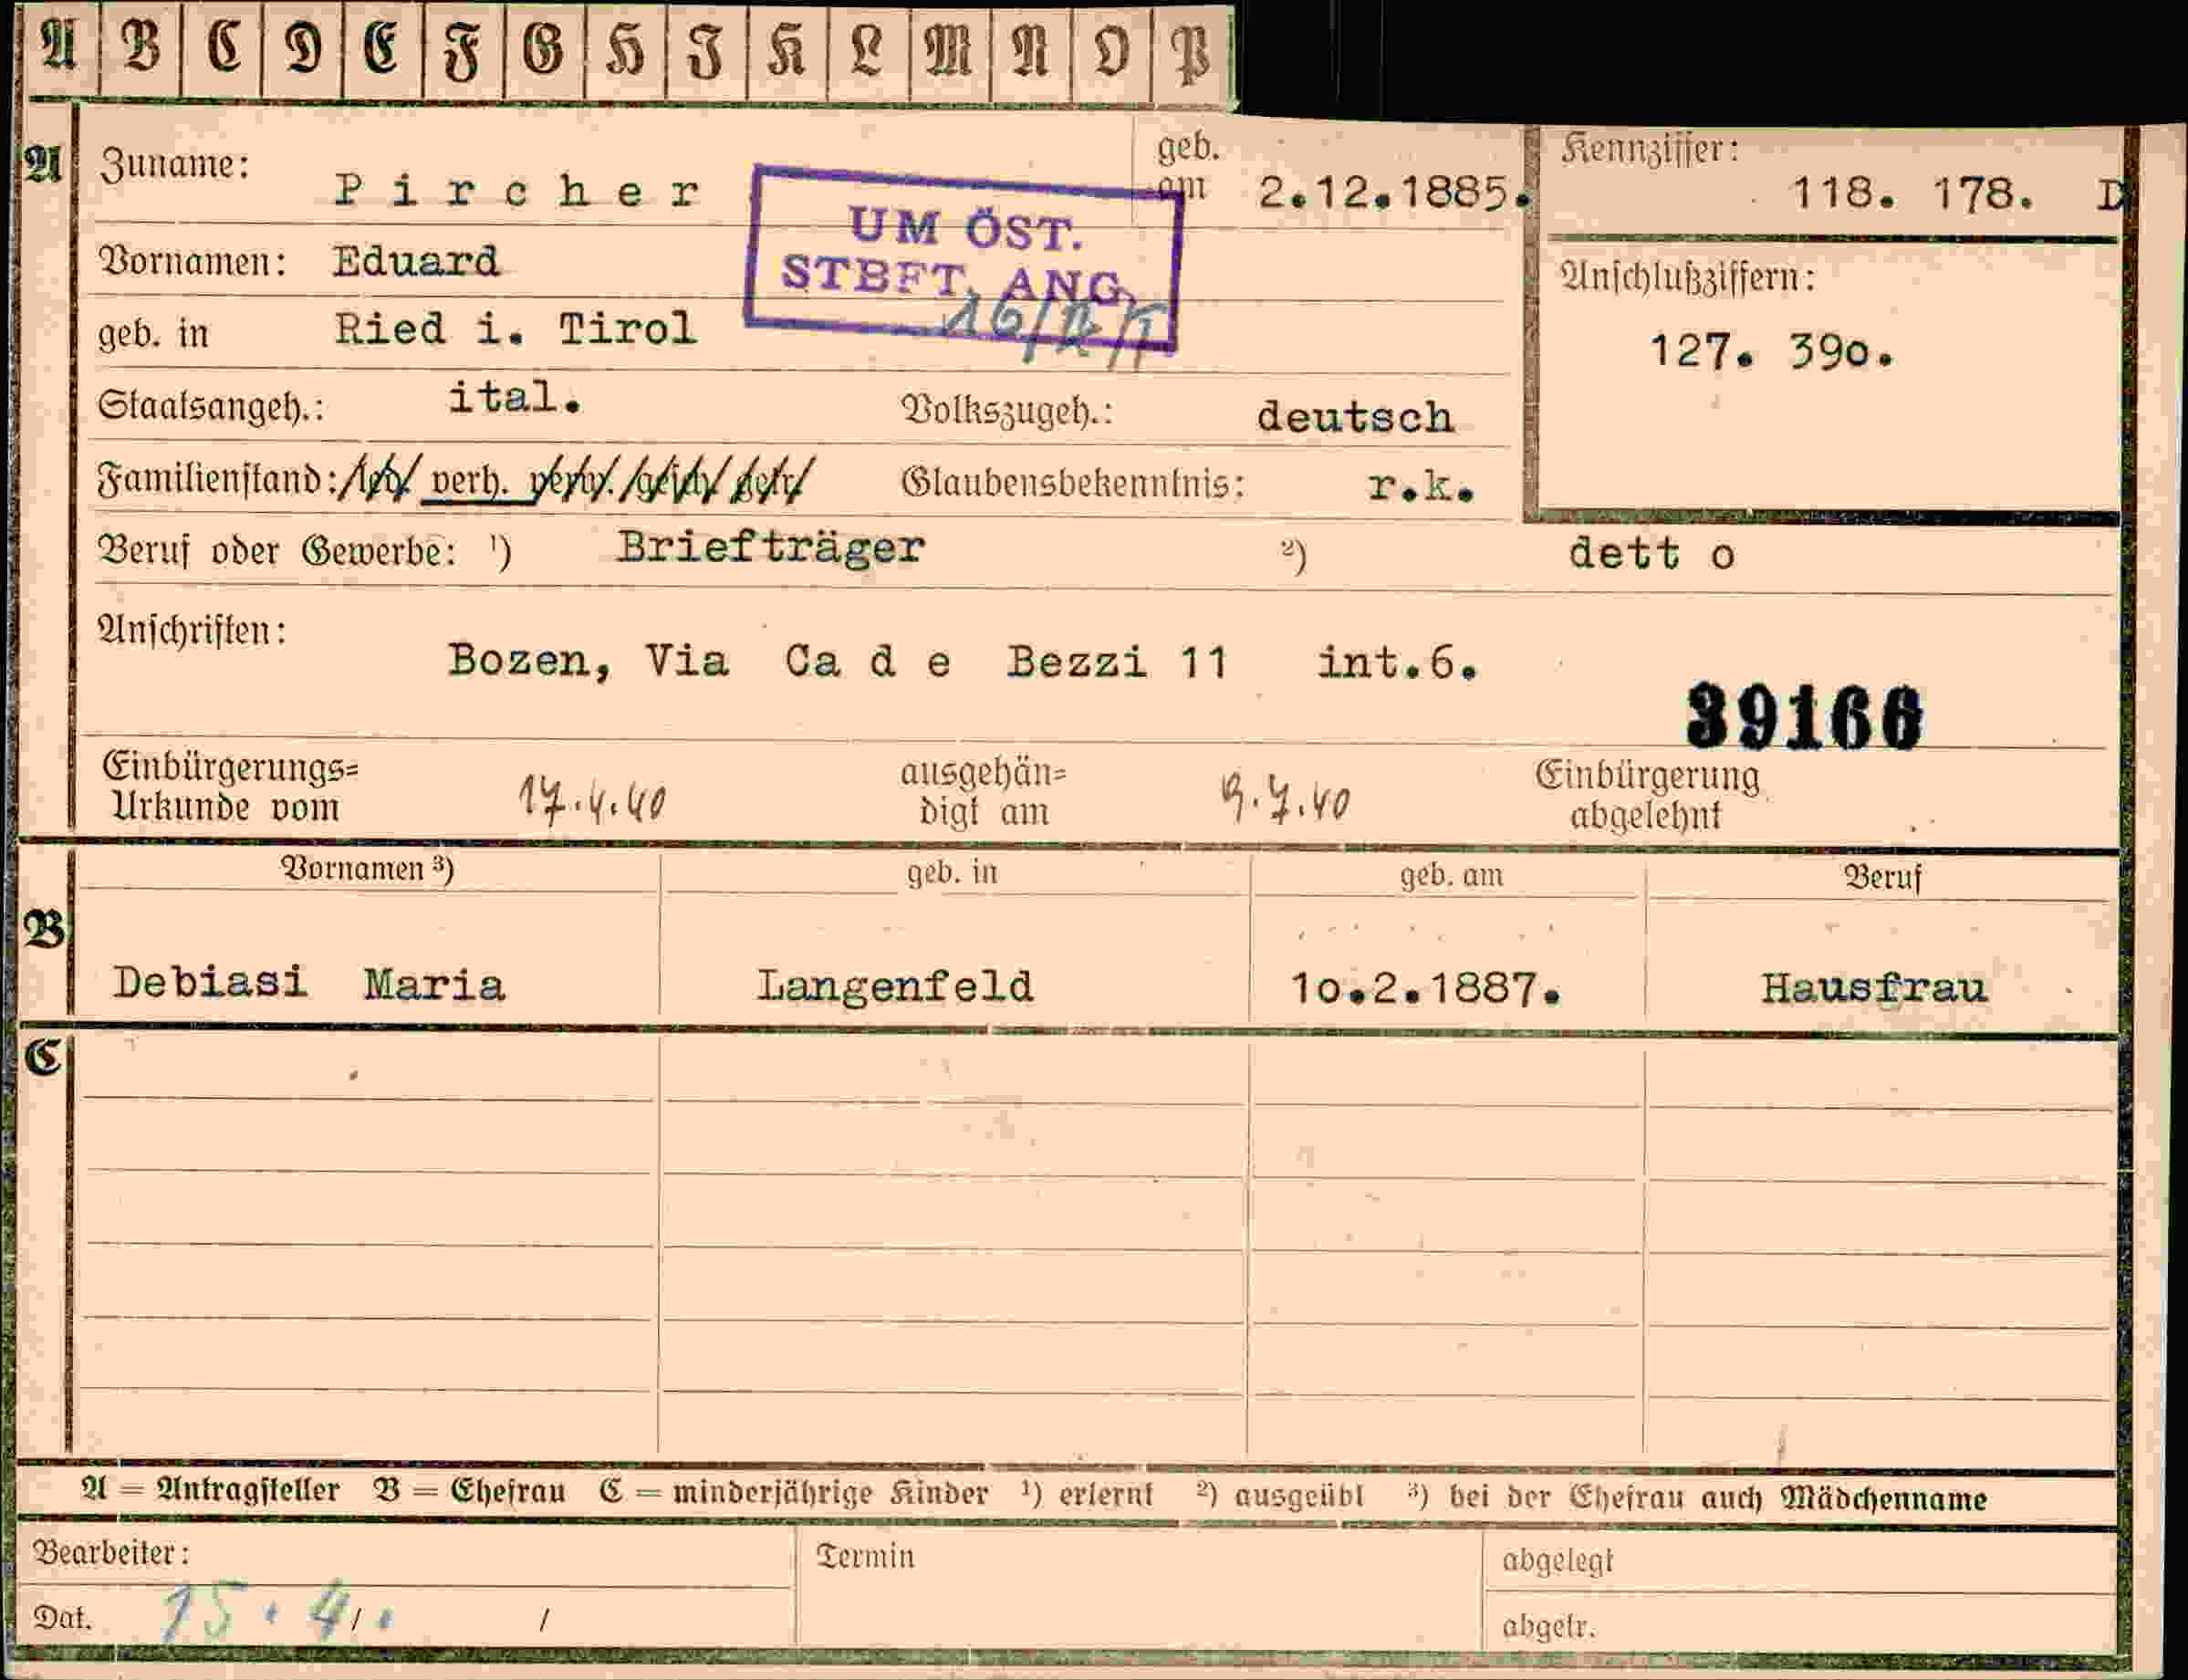 A B C D E F G H I K L M N O P
A Zuname: Pircher geb. am 2.12.1885. Kennziffer: 118. 178. D
UM ÖST.
STBFT. ANG.
Vornamen: Eduard
Anschlußziffern:
geb. in Ried i. Tirol
127. 390.
Staatsangeh.: ital. Volkszugeh.: deutsch
Familienstand: verh. Glaubensbekenntnis: r.k.
Beruf oder Gewerbe: ¹) Briefträger ²) dett o
Anschriften:
Bozen, Via Ca d e Bezzi 11 int.6.
39166
Einbürgerungs= ausgehän= Einbürgerung
Urkunde vom 17.4.40 digt am 9.7.40 abgelehnt
Vornamen ³) geb. in geb. am Beruf
B
Debiasi Maria Langenfeld 10.2.1887. Hausfrau
C
A = Antragsteller B = Ehefrau C = minderjährige Kinder ¹) erlernt ²) ausgeübt ³) bei der Ehefrau auch Mädchenname
Bearbeiter: Termin abgelegt
Dat. 15.4/. / abgetr.